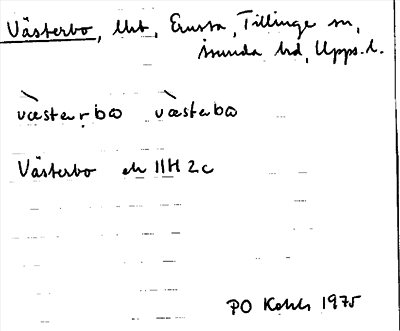 Västerbo, Ert, Ensta, Tillinge sn,
Åsunda hd, Upps. l.
væsterbω væsterbω
Västerbo ek 11H 2c
PO Kohls 1975